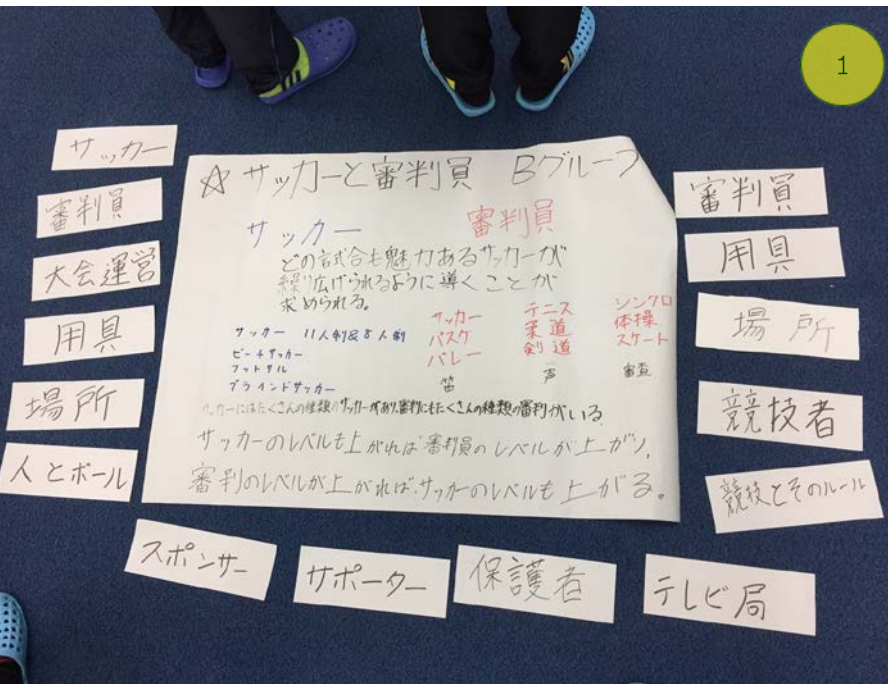 1
サッカー
審判員
大会運営
用具
場所
人とボール
☆サッカーと審判員 Bグループ
サッカー 審判員
どの試合も魅力あるサッカーが
繰り広げられるように導くことが
求められる。
サッカー 11人制&8人制
ビーチサッカー
フットサル
ブラインドサッカー
サッカー テニス シンクロ
バスケ 柔道 体操
バレー 剣道 スケート
笛 声 審査
サッカーにはたくさんの種類のサッカーがあり、審判にもたくさんの種類の審判がいる
サッカーのレベルも上がれば審判員のレベルが上がり、
審判のレベルが上がれば、サッカーのレベルも上がる。
審判員
用具
場所
競技者
競技とそのルール
スポンサー
サポーター
保護者
テレビ局